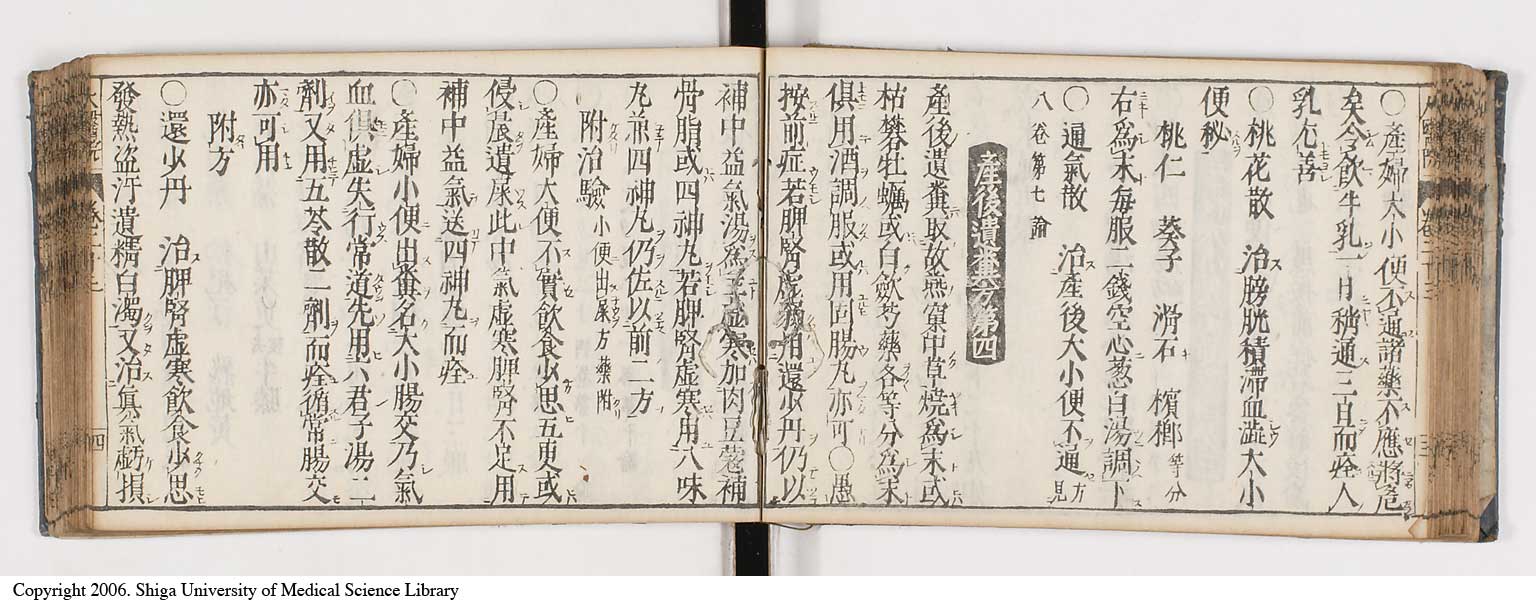 〇産婦大小便不通諸藥不應將危
矣令飲牛乳一日稍通三日而痊人
乳尤善
〇桃花散　治膀胱積滯血澁大小
便秘
桃仁　葵子　滑石　檳榔等分
右爲末每服二錢空心葱白湯調下
〇通氣散　治産後大小便不通方見
八卷第七論
産後遺糞方第四
産後遺糞取故燕窠中草燒爲末或
枯礬牡蠣或白歛芍藥各等分爲末
俱用酒調服或用固腸丸亦可〇愚
按前症若脾腎虛弱用還少丹仍以
補中益氣湯爲主虛寒加肉豆蔻補
骨脂或四神丸若脾腎虛寒用八味
丸兼四神丸仍佐以前二方
附治驗小便出屎方藥附
〇産婦大便不實飲食少思五更或
侵晨遺屎此中氣虛寒脾腎不足用
補中益氣送四神丸而痊
〇産婦小便出糞名大小腸交乃氣
血俱虛失行常道先用六君子湯二
劑又用五苓散二劑而痊循常腸交
亦可用
附方
〇還少丹　治脾腎虛寒飲食少思
發熱盜汗遺精白濁又治真氣虧損
四
Copyright 2006. Shiga University of Medical Science Library